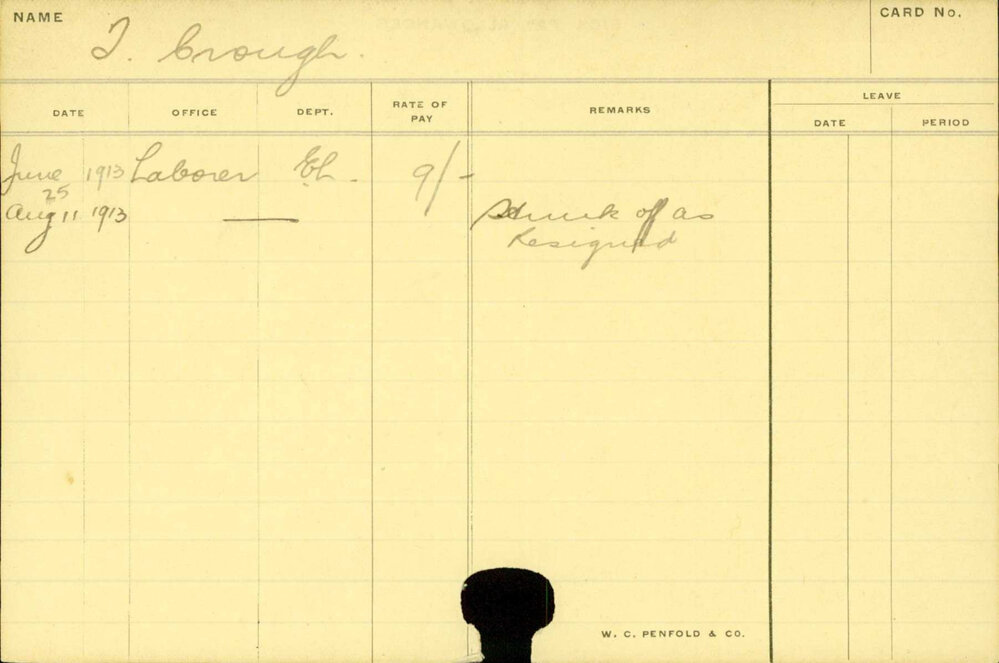 NAME
T. Crough.
CARD No.
DATE
OFFICE
DEPT.
RATE OF PAY
REMARKS
LEAVE
DATE
PERIOD
June 25 1913 Laborer EL. 9/-
Aug 11 1913 — Struck off as
Resigned
W. C. PENFOLD & CO.